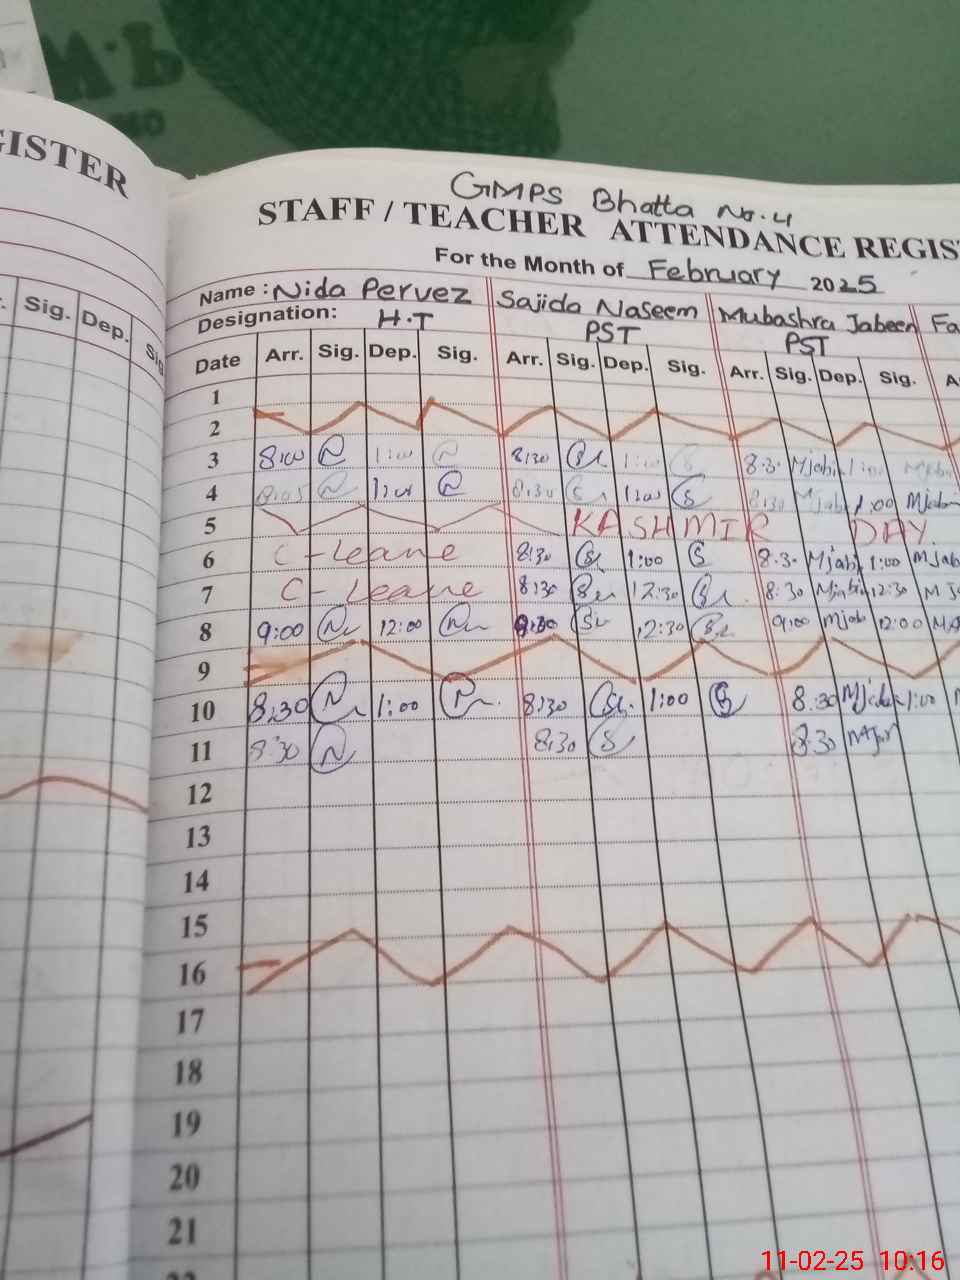 GISTER
Sig. Dep.
GMPS Bhatta No. 4
STAFF / TEACHER ATTENDANCE REGIS
For the Month of February 2025
Name : Nida Pervez Sajida Naseem Mubashra Jabeen Fa
Designation: H.T PST PST
Date Arr. Sig. Dep. Sig. Arr. Sig. Dep. Sig. Arr. Sig. Dep. Sig. A
1
2
3 8:00 1:00 8:30 1:00 8:30 Mjabi 1:00
4 8:05 1:00 8:30 1:00 S 8:30 Mjabi 1:00 Mjabi
5 KASHMIR DAY
6 C-Leave 8:30 1:00 S 8:30 Mjabi 1:00 Mjab
7 C-Leave 8:30 12:30 8:30 Mjabi 12:30 MJ
8 9:00 12:00 9:30 12:30 9:00 Mjab 12:00
9
10 8:30 N 1:00 8:30 1:00 S 8:30 1:00 M
11 8:30 N 8:30 S 8:30
12
13
14
15
16
17
18
19
20
21
11-02-25 10:16